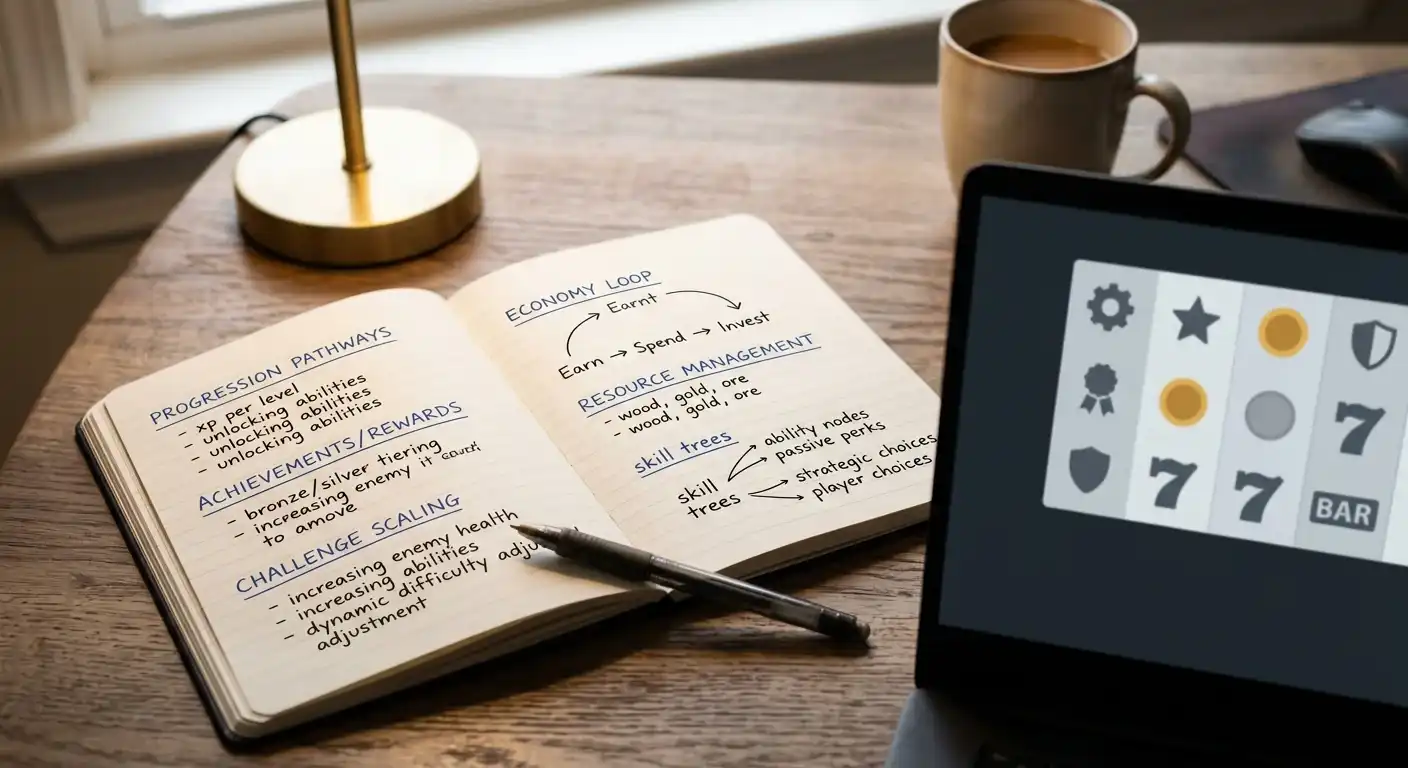 PROGRESSION PATHWAYS
- xp per level
- unlocking abilities
- unlocking abilities
- unlocking abilities
ACHIEVEMENTS/REWARDS
- bronze/silver tiering
- increasing enemy it
to amove
CHALLENGE SCALING
- increasing enemy health
- increasing abilities
- dynamic difficulty adju
adjustment
ECONOMY LOOP
Earnt
Earn → Spend → Invest
RESOURCE MANAGEMENT
- wood, gold, ore
- wood, gold, ore
skill trees
skill trees
ability nodes
passive perks
strategic choices
player choices
7
7 7
BAR